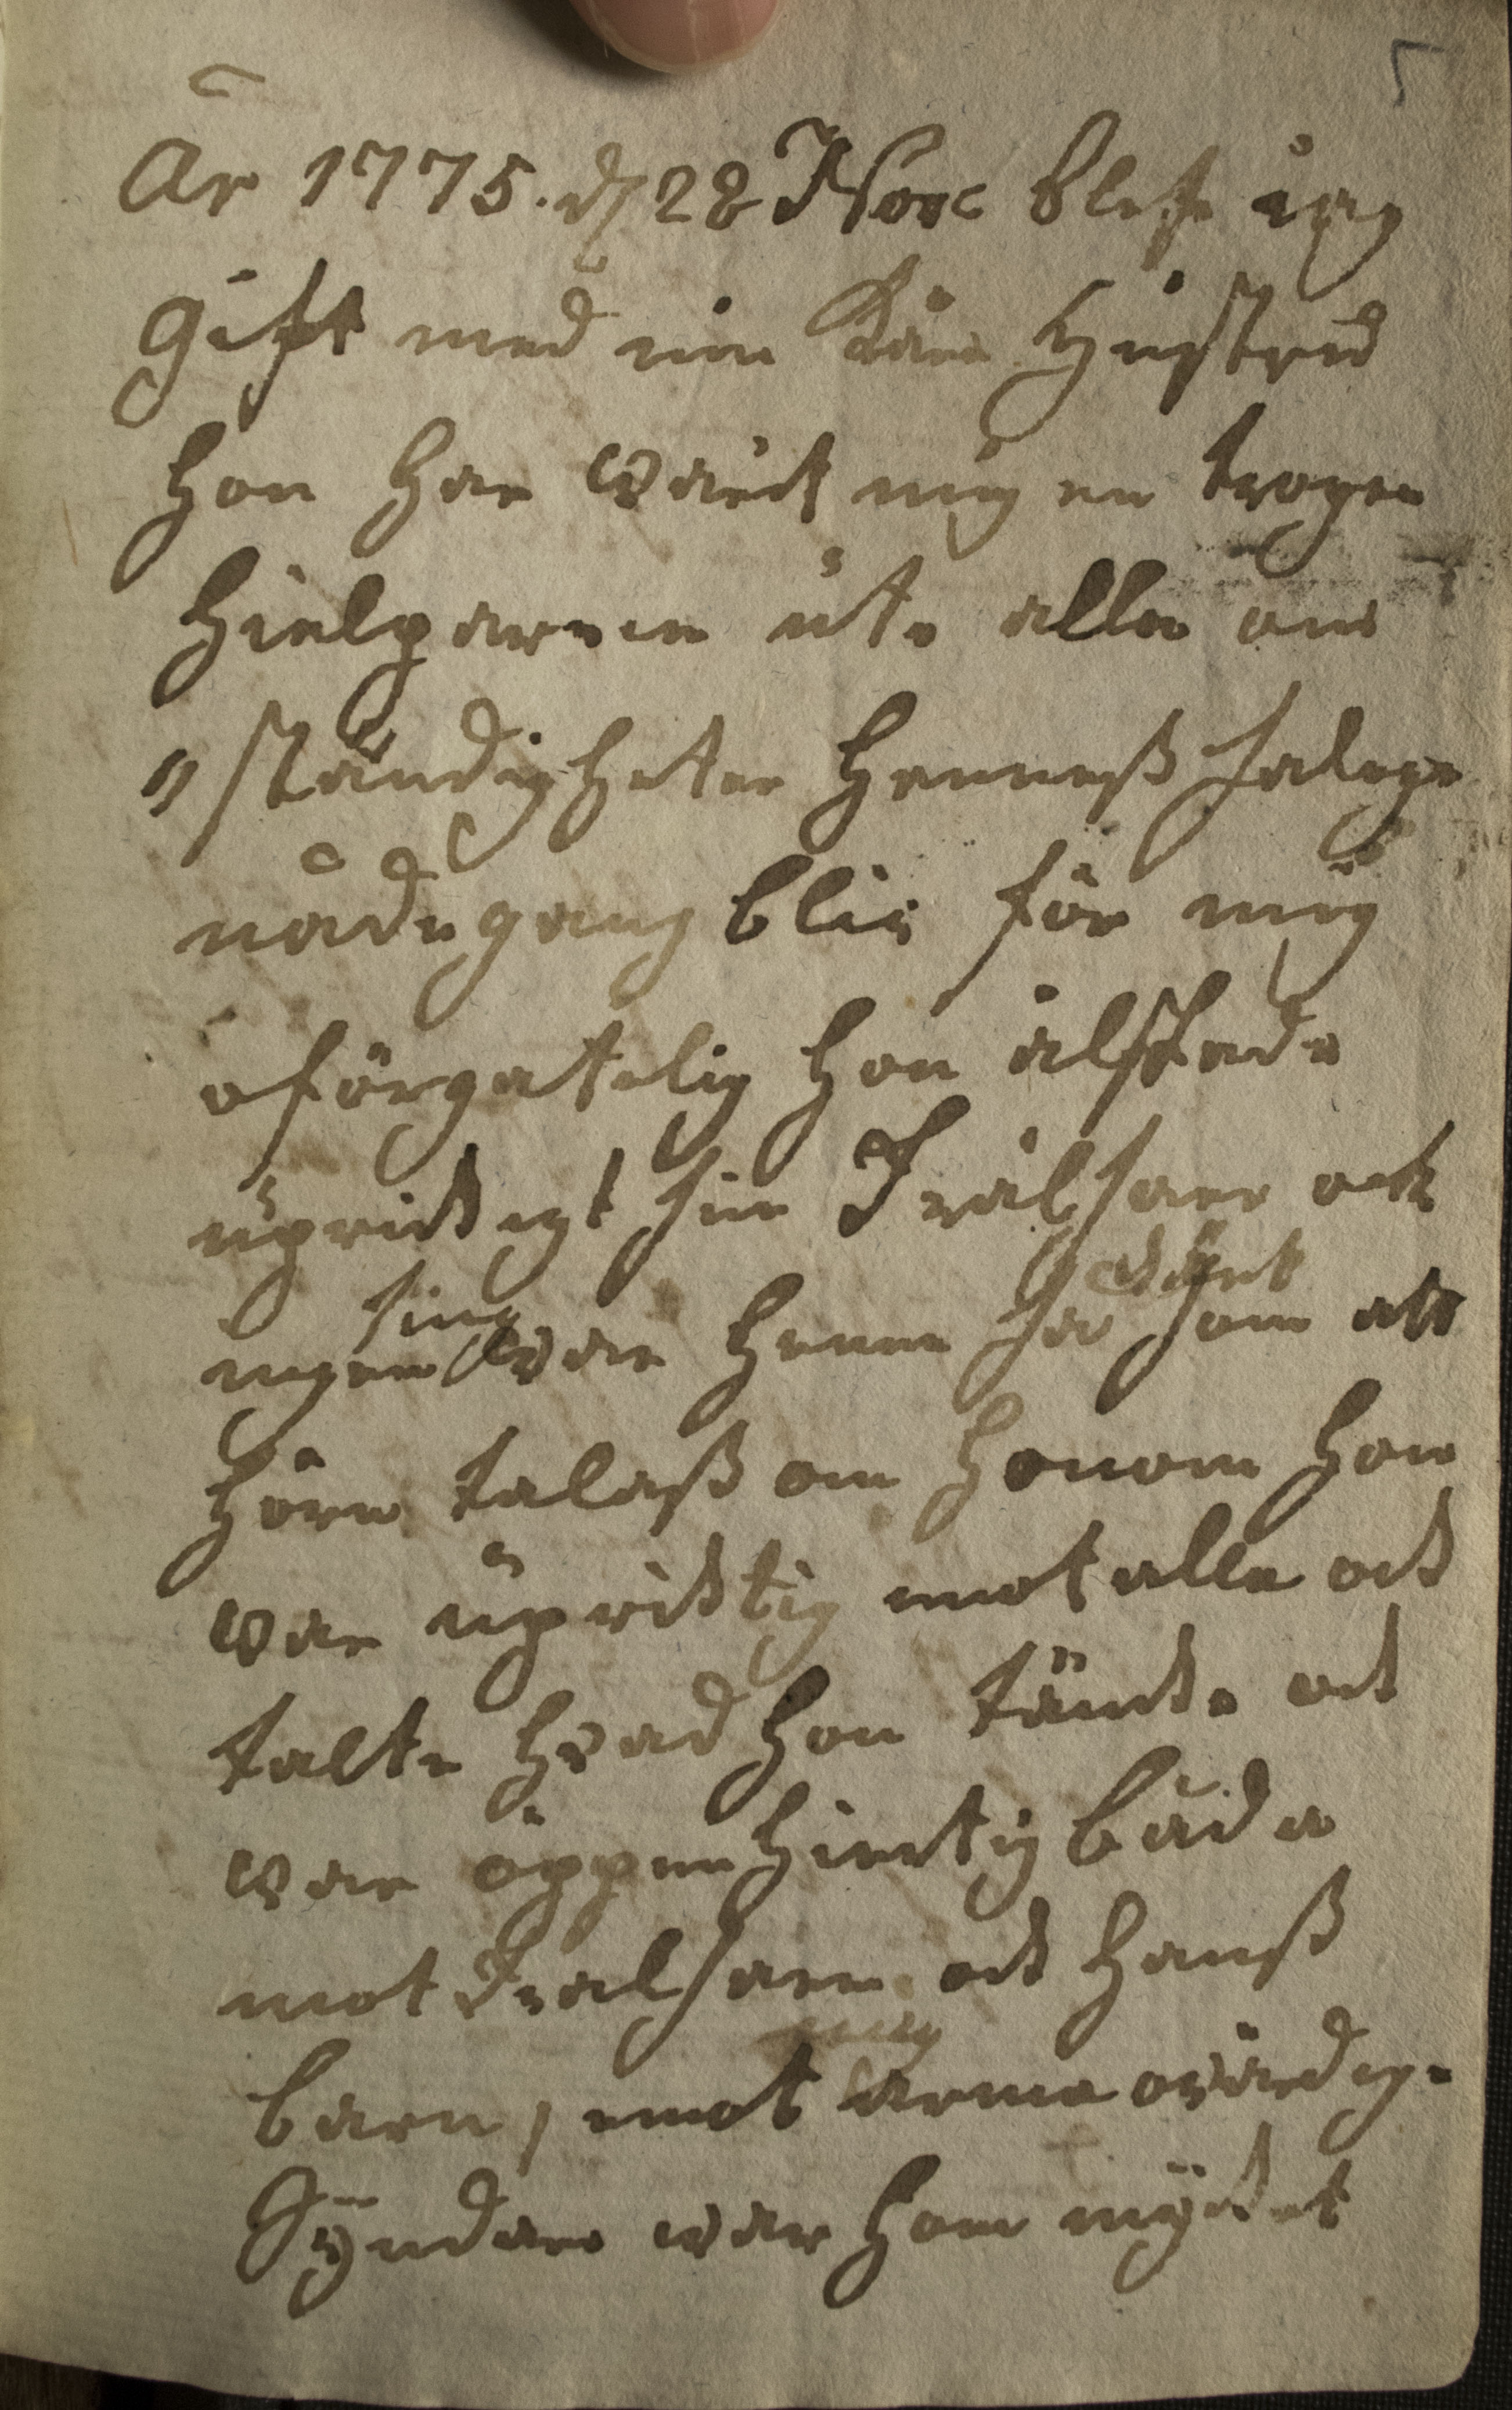 5
År 1775. d 28 Nov blef iag
gift med min kära Hustrü
hon har warit mig en trogen
hielparine üti alla om
"ständigheter henneß salige
nådegang blir för mig
oförgätelig hon älskade
üpricktigt sin Frälsare ock
ingen ting war henne så kiärt som att
höra talaß om honom hon
war üpricktig mot alla ock
talte hvad hon täncte ock
war öppenhiertig båda
mot Frälsaren ock hanß
barn, mot mig arma ovärdige
Syndare war hon mycket